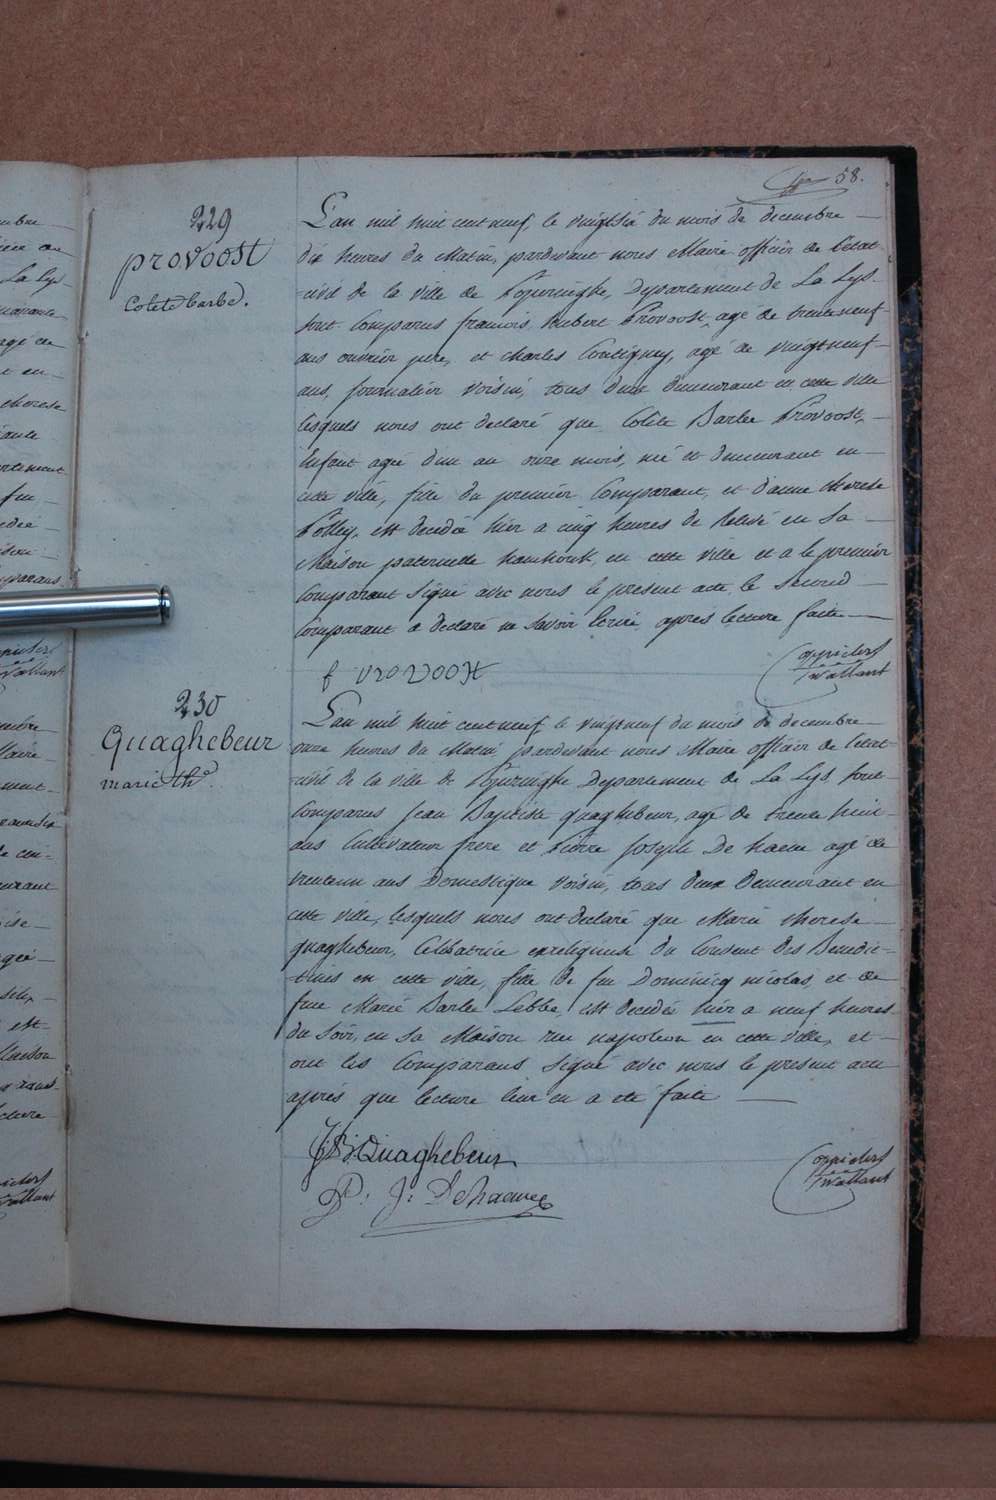 58.
229
provoost
Colete barbe.
L'an mil huit cent neuf, le vingtsix du mois de decembre
dix heures du Matin, pardevant nous Maire officier de l'etat
civil de la ville de Poperinghe, Departement de La Lys
sont Comparus francois hubert Provoost, agé de trenteneuf
ans ouvrier pere, et charles Coutigny, agé de vingtneuf
ans, journalier voisin, tous deux demeurant en cette ville
lesquels nous ont declaré que Colete Barbe Provoost,
Enfant agée d'un an onze mois, né et demeurant en
cette ville, fille du premier Comparant, et d'anne therese
est decedée hier a cinq heures de Relevé en Sa
Maison paternelle en cette ville et a le premier
Comparant signé avec nous le present acte, le second
Comparant a declaré ne savoir Ecrire, apres lecture faite
f provoost
230
Quaghebeur
marie the
L'an mil huit cent neuf le vingtneuf du mois de decembre
onze heures du Matin pardevant nous Maire officier de l'etat
civil de la ville de Poperinghe Departement de La Lys sont
Comparus Jean Baptiste quaghebeur, agé de trente huit
ans Cultivateur frere et Pierre Joseph De haene agé de
trenteun ans Domestique voisin, tous deux Demeurant en
cette ville, lesquels nous ont declaré que Marie therese
quaghebeur, Celibatrice exreligieuse du Couvent des Benedic-
-tines en cette ville, fille de feu Dominicq nicolas, et de
feue Marie Barbe Lebbe, est decedée hier a neuf heures
du Soir, en sa Maison rue napoleon en cette ville, et
ont les Comparans signé avec nous le present acte
aprés que lecture leur en a été faite
J:B: Quaghebeur
P: J: Dehaene